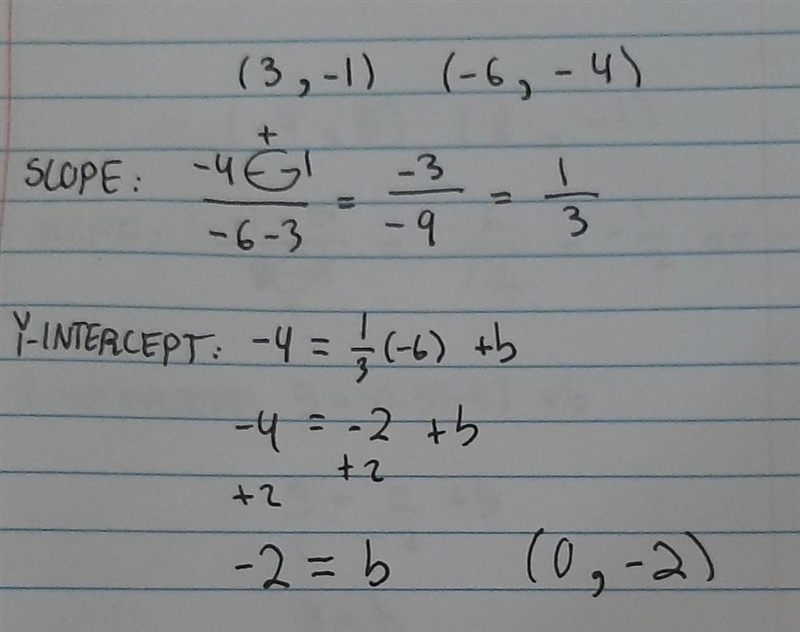 (3, -1) (-6, -4)
+
SLOPE: -4 - -1 / -6-3 = -3 / -9 = 1 / 3
Y-INTERCEPT: -4 = 1/3 (-6) +b
-4 = -2 +b
+2
+2
-2 = b (0, -2)